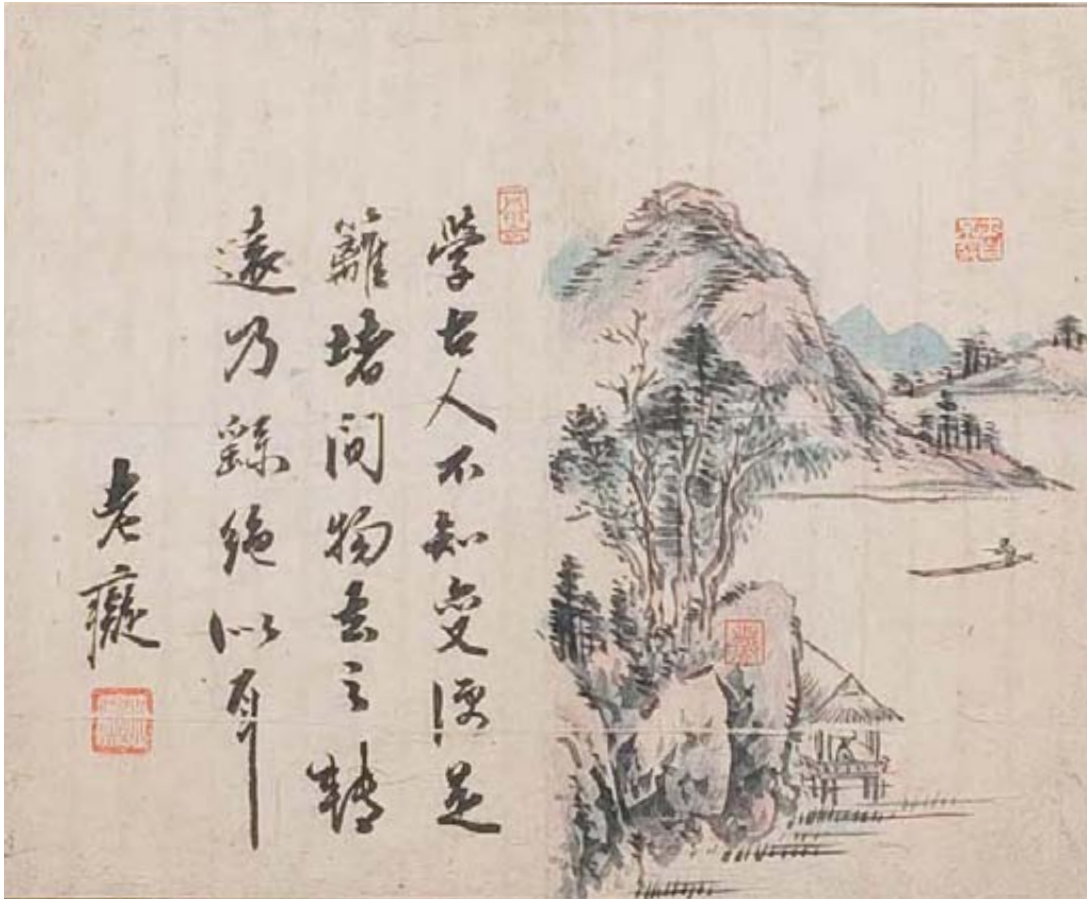 学古人不知变便是
籬堵間物去之轉
遠乃繇絶似耳
老癡